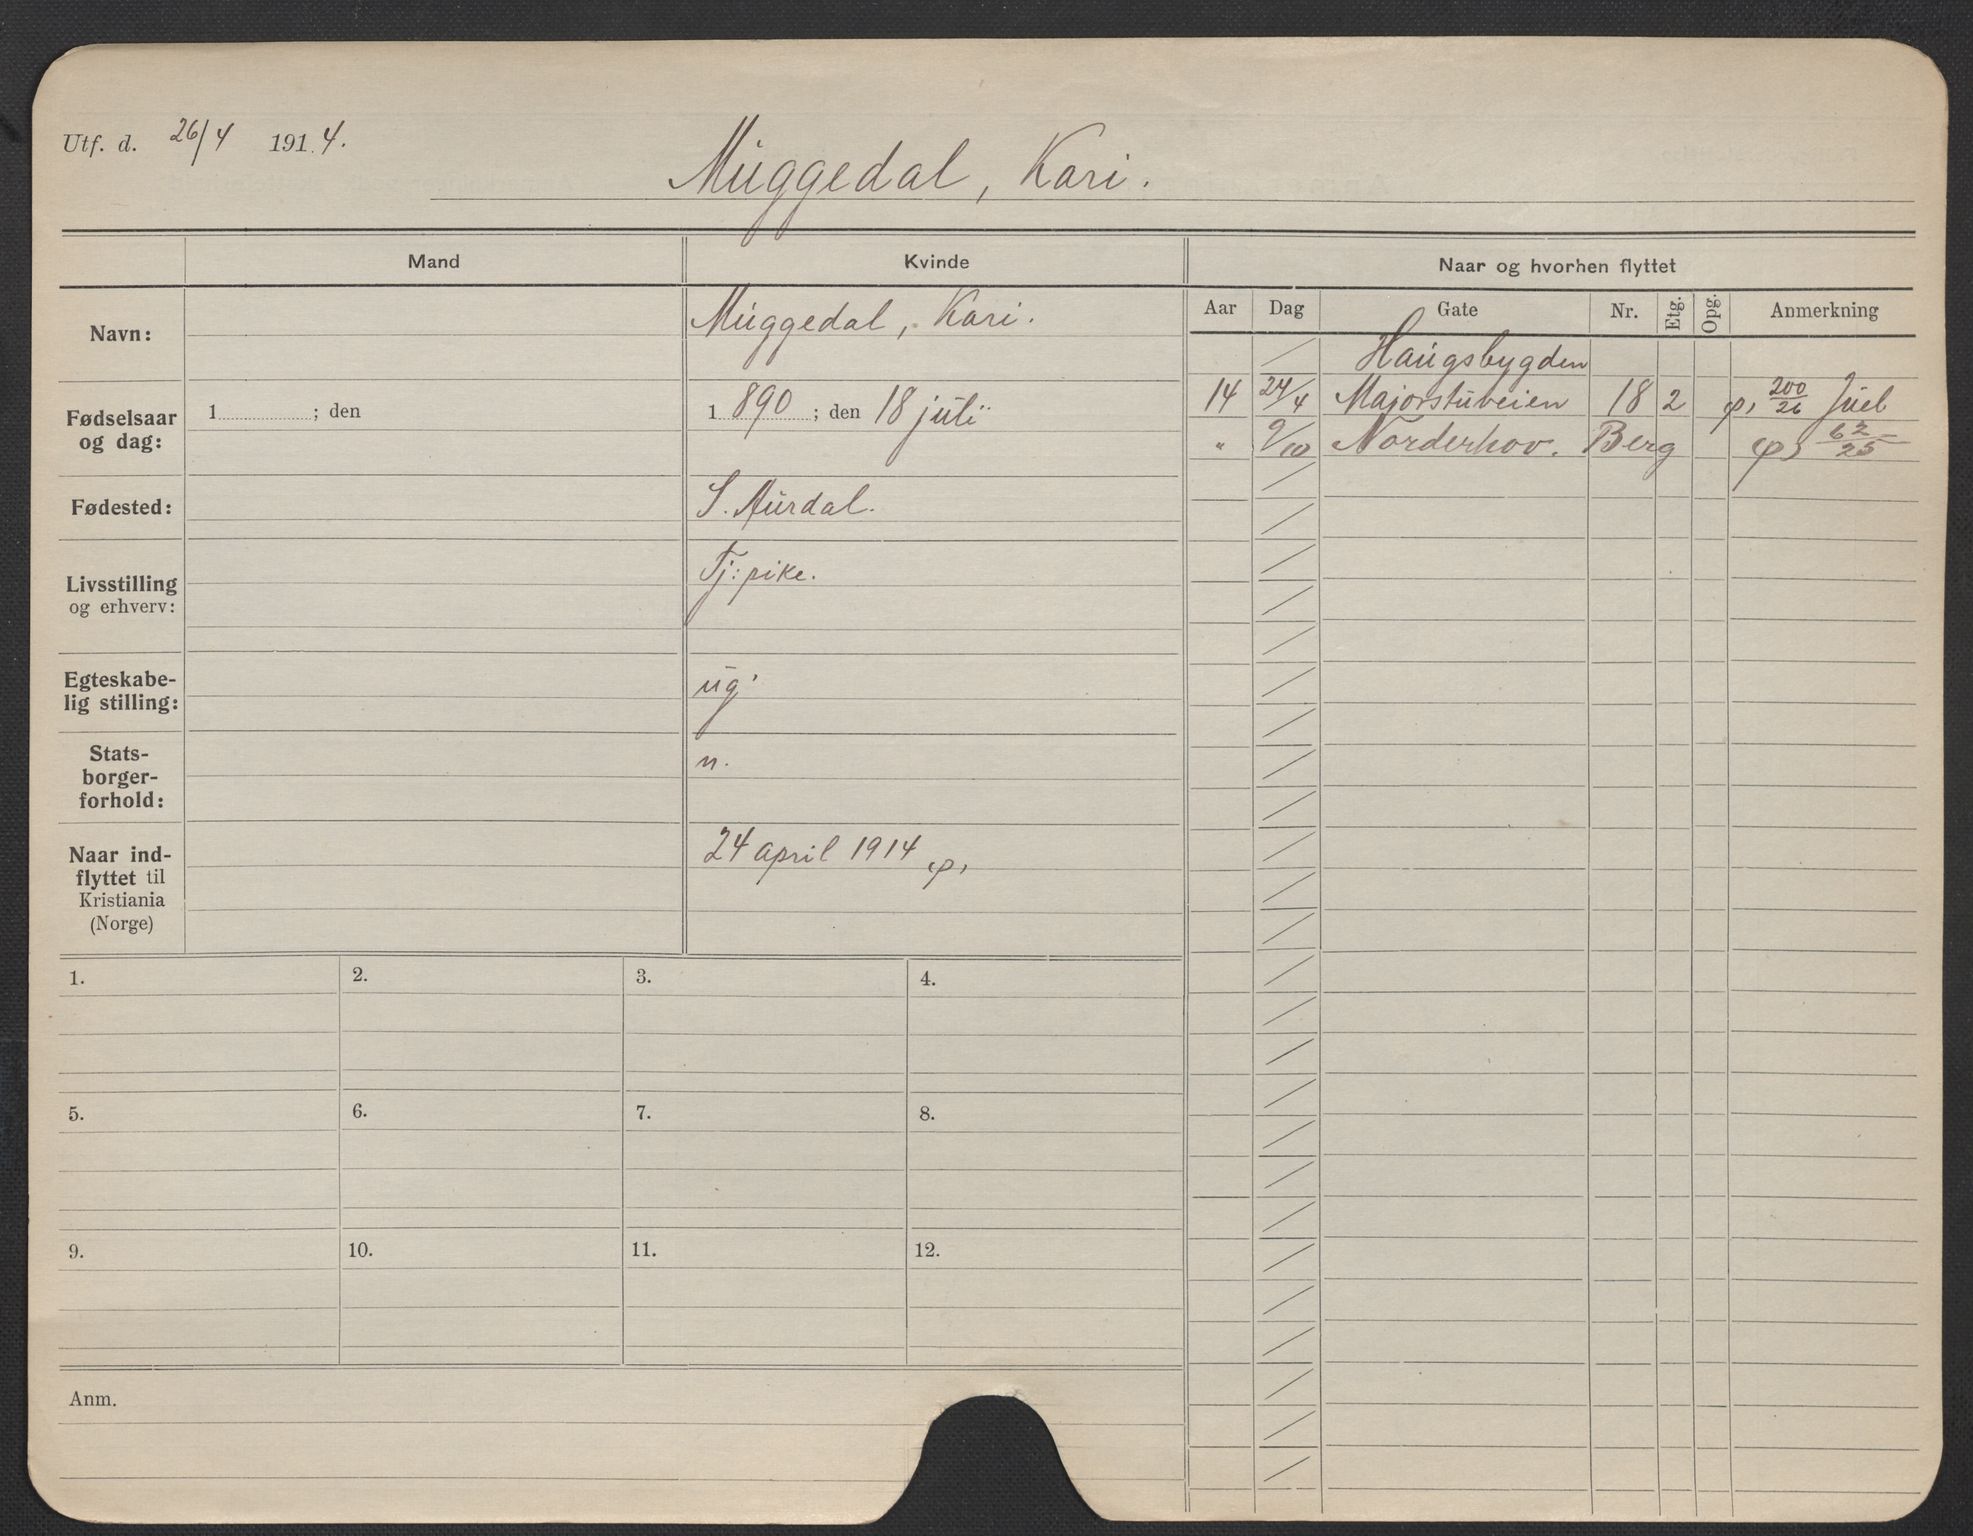 Utf. d. 26/4 1914.
Muggedal, Kari.
Mand
Kvinde
Naar og hvorhen flyttet
Navn:
Muggedal, Kari.
Fødselsaar og dag:
1 ; den
1 890 ; den 18 juli
Fødested:
S. Aurdal.
Livsstilling og erhverv:
Tj: pike.
Egteskabe-
lig stilling:
ug
Stats-
borger-
forhold:
n.
Naar ind-
flyttet til
Kristiania
(Norge)
24 april 1914
Aar Dag Gate Nr. Etg. Opg. Anmerkning
Haugsbygden
14 24/4 Majorstuveien 18 2 200/26 Juel
" 9/10 Norderhov. Berg 62/25
1. 2. 3. 4.
5. 6. 7. 8.
9. 10. 11. 12.
Anm.